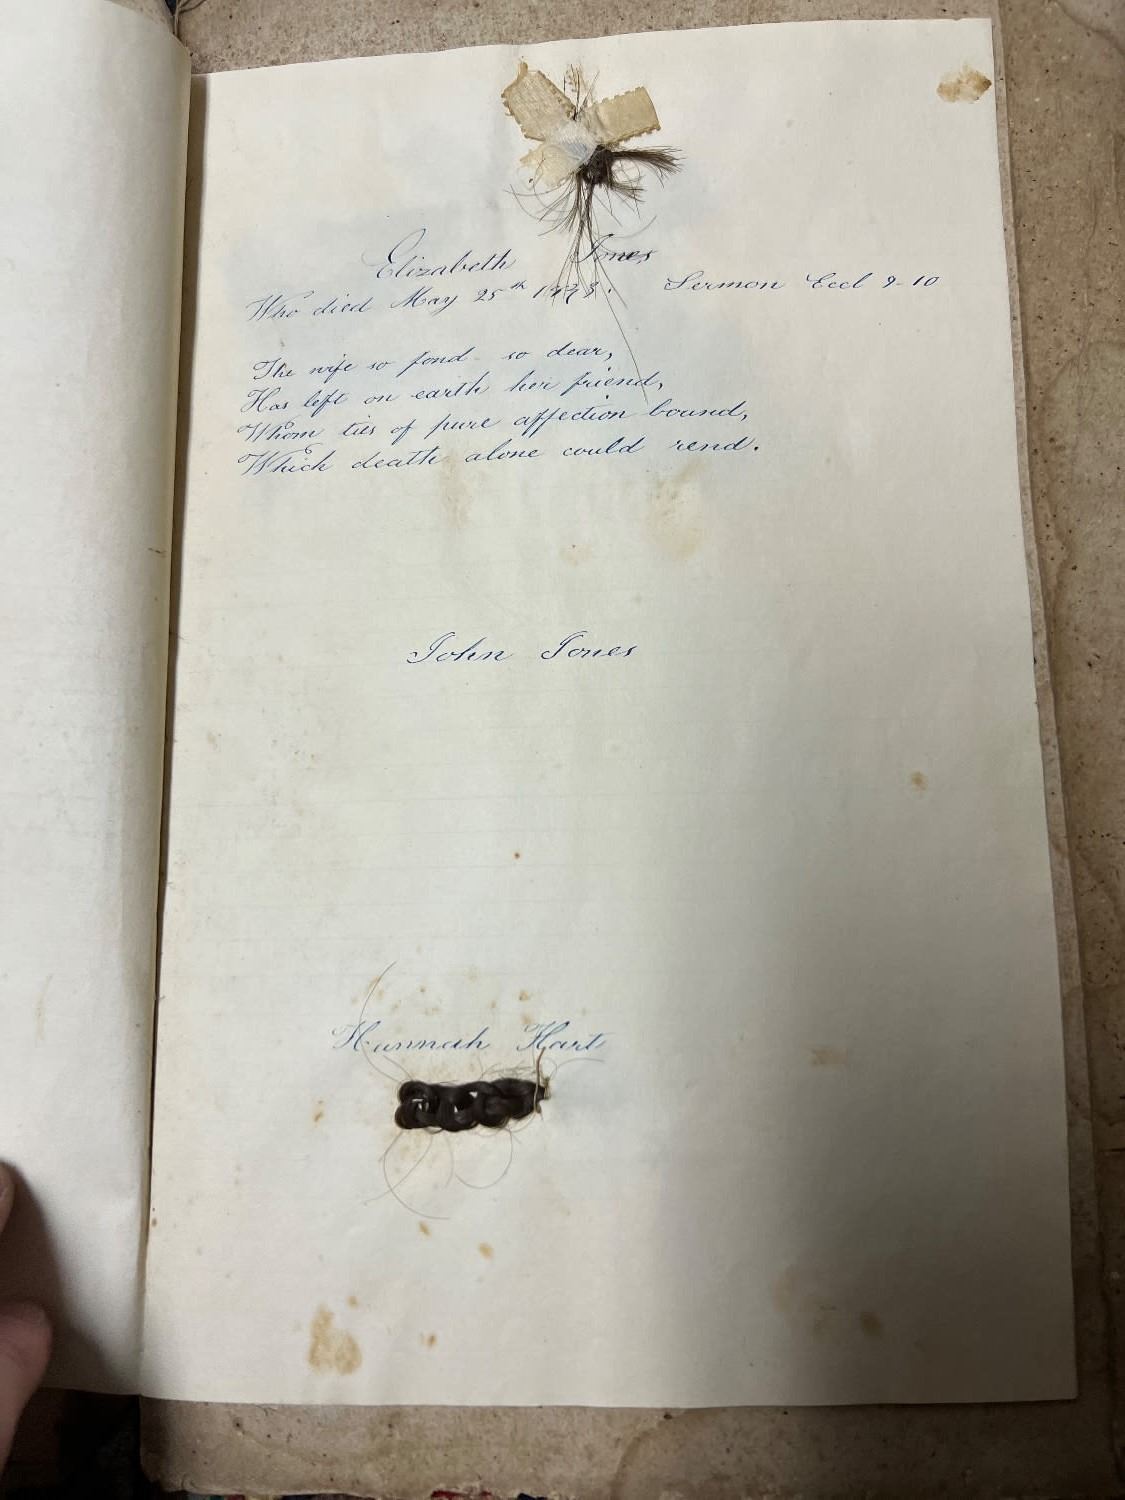 Elizabeth Jones
Who died May 25th Sermon Eccl 9-10
The wife so fond so dear,
Has left on earth her friend,
Whom ties of pure affection bound,
Which death alone could rend.
John Jones
Hannah Hart